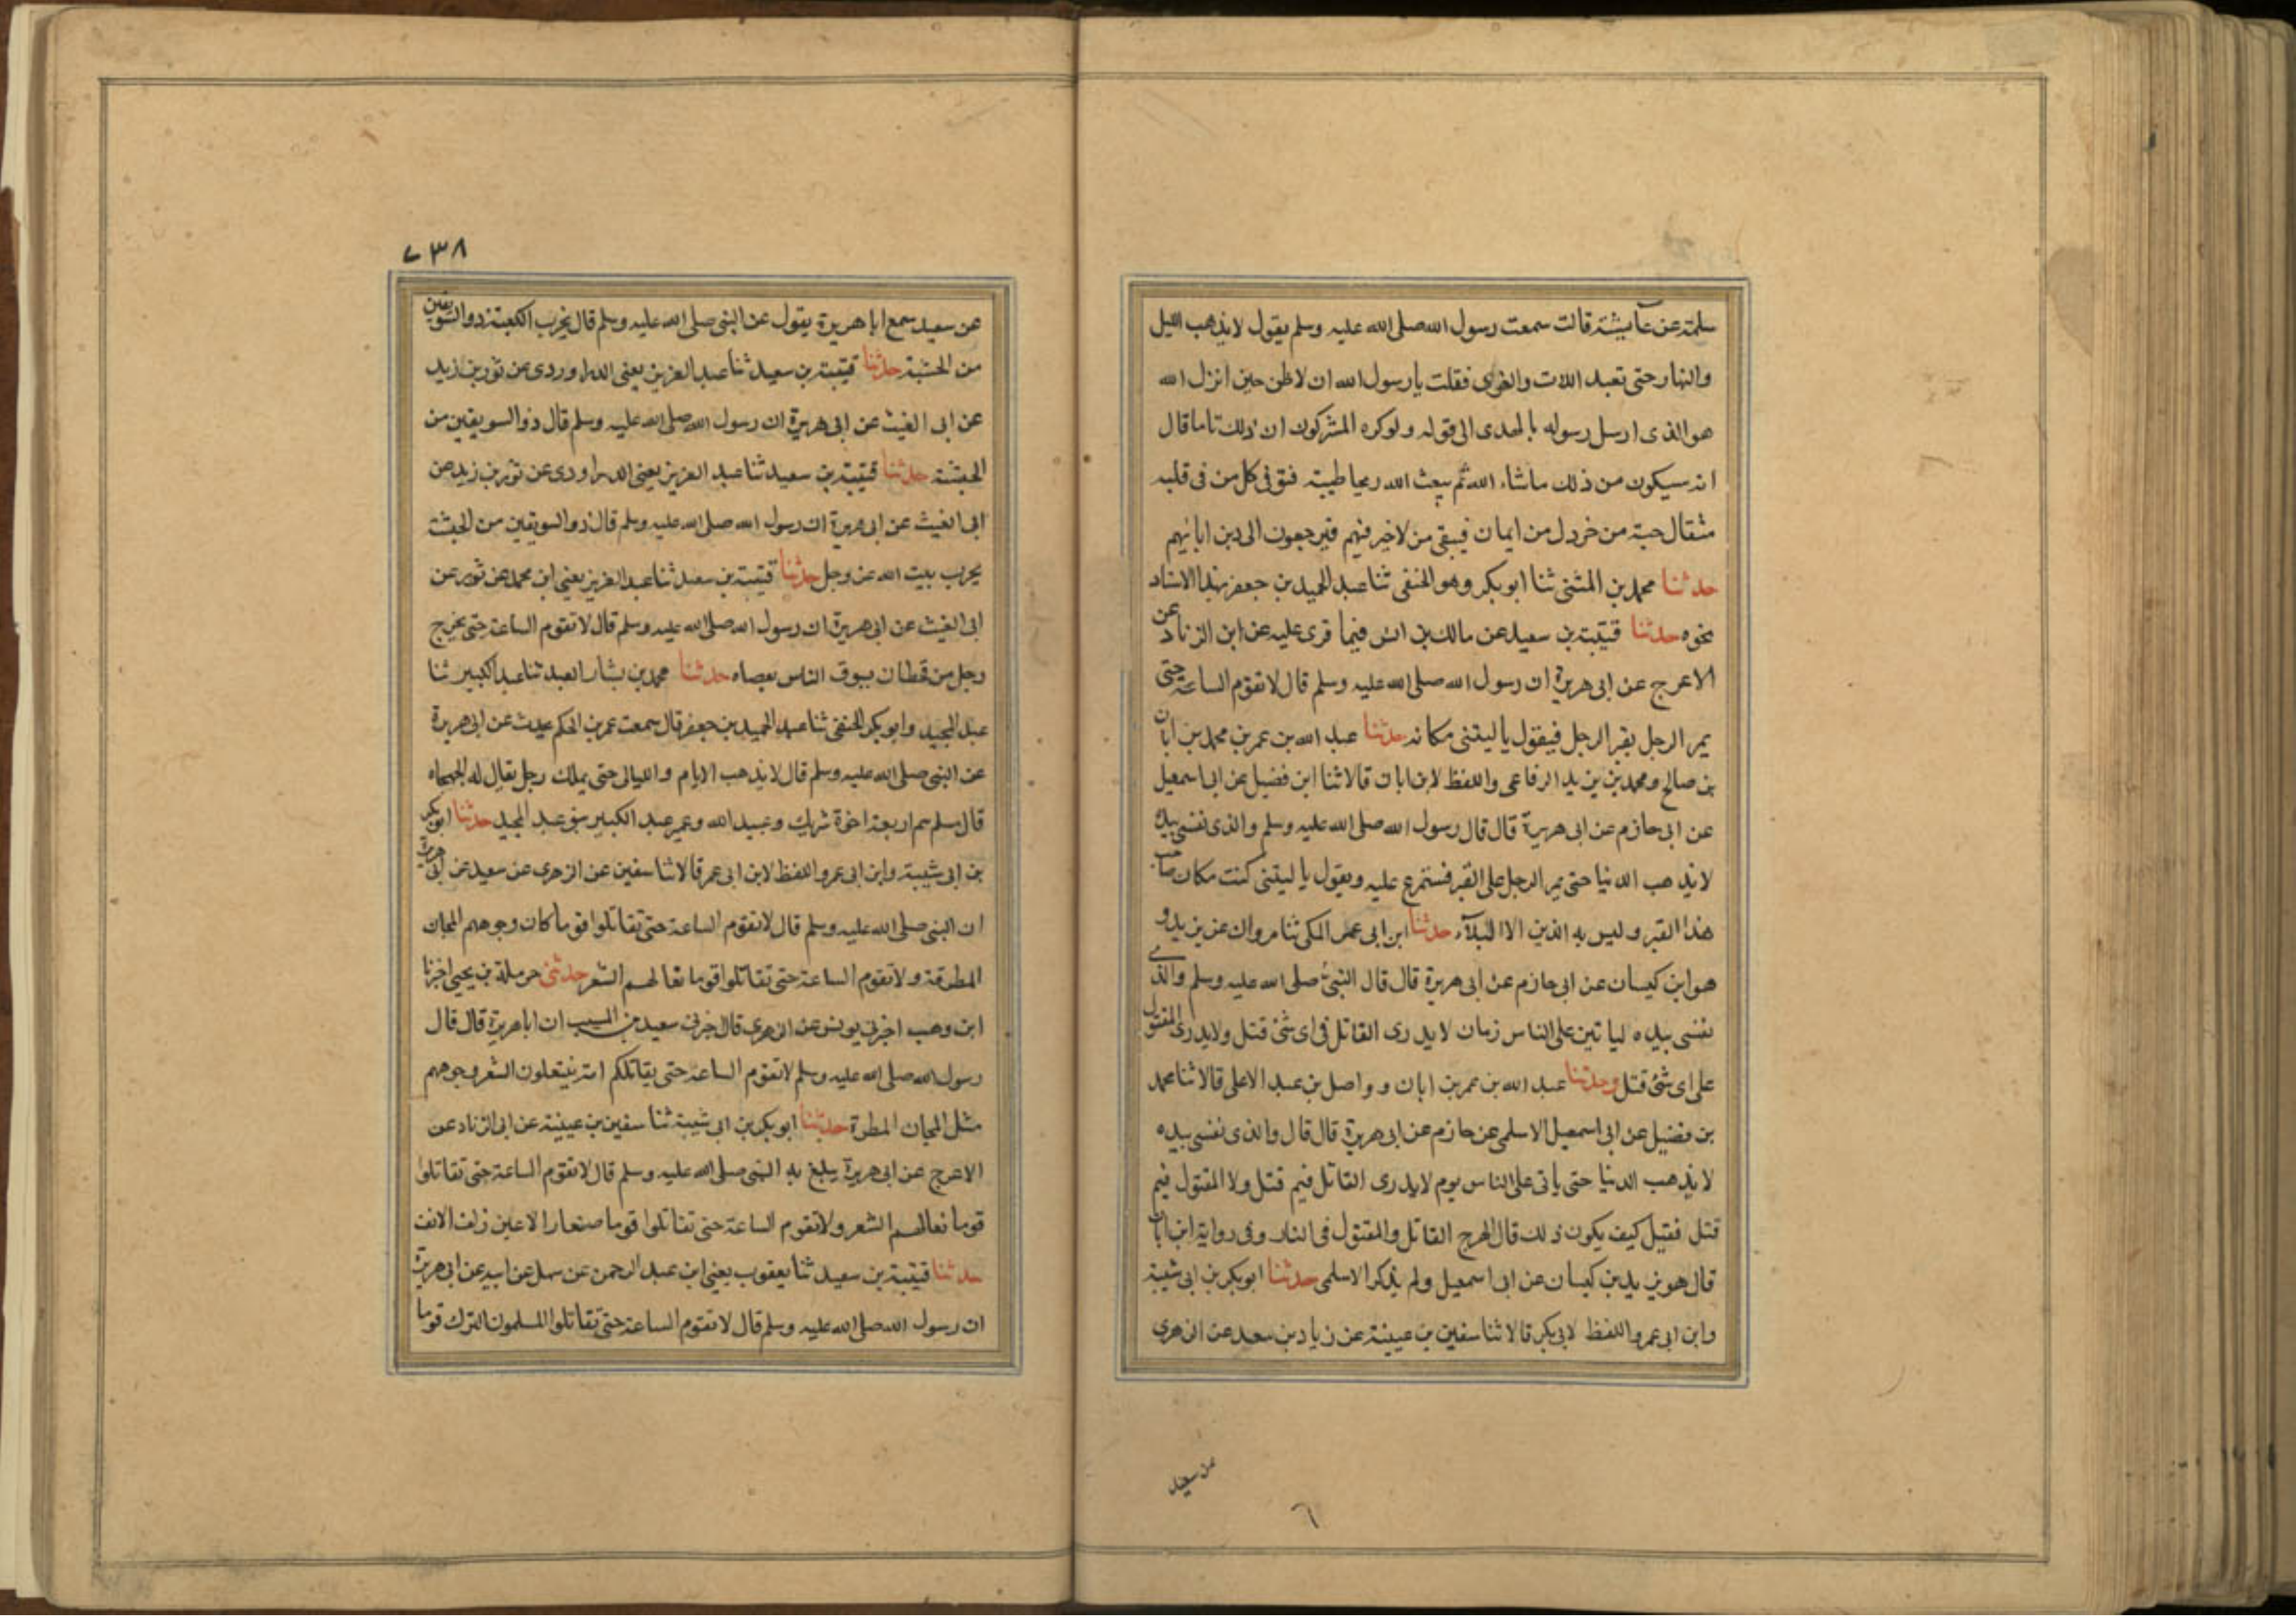 سلمة عن عآيشة قالت سمعت رسول الله صلى الله عليه وسلم يقول لا يذهب الليل
والنهار حتى تعبد اللات والعزى فقلت يا رسول الله ان لاظن حين انزل الله
هو الذى ارسل رسوله بالهدى الى قوله ولو كره المشركون ان ذلك تاما قال
انه سيكون من ذلك ماشاء الله ثم يبعث الله ريحا طيبة فتوفى كل من فى قلبه
مثقال حبة من خردل من ايمان فيبقى من لاخير فيهم فيرجعون الى دين ابائهم
حدثنا محمد بن المثنى ثنا ابو بكر وهو الحنفى ثنا عبد الحميد بن جعفر بهذا الاسناد
نحوه حدثنا قتيبة بن سعيد عن مالك بن انس فيما قرى عليه عن ابن الزناد عن
الاعرج عن ابى هريرة ان رسول الله صلى الله عليه وسلم قال لا تقوم الساعة حتى
يمر الرجل بقبر الرجل فيقول يا ليتنى مكانه حدثنا عبد الله بن عمر بن محمد بن ابان
بن صالح ومحمد بن يزيد الرفاعى واللفظ لابن ابان قالا ثنا ابن فضيل عن ابى اسمعيل
عن ابى حازم عن ابى هريرة قال قال رسول الله صلى الله عليه وسلم والذى نفسى بيده
لا يذهب الدنيا حتى يمر الرجل على القبر فستمرع عليه ويقول يا ليتنى كنت مكان صاحب
هذا القبر وليس به الذين الا البلآء حدثنا ابن ابى عمر المكى ثنا مروان عن يزيد و
هو ابن كيسان عن ابى حازم عن ابى هريرة قال قال النبى صلى الله عليه وسلم والذى
نفسى بيده لياتين على الناس زمان لا يدرى القاتل فى اى شئ قتل ولا يدرى المقتول
على اى شئ قتل وحدثنا عبد الله بن عمر بن ابان وواصل بن عبد الاعلى قالا ثنا محمد
بن فضيل عن ابى اسمعيل الاسلمى عن حازم عن ابى هريرة قال قال والذى نفسى بيده
لا يذهب الدنيا حتى ياتى على الناس يوم لا يدرى القاتل فيم قتل ولا المقتول فيم
قتل فقيل كيف يكون ذلك قال الهرج القاتل والمقتول فى النار وفى رواية ابن ابان
قال هو يزيد بن كيسان عن ابى اسمعيل ولم يذكر الاسلمى حدثنا ابو بكر بن ابى شيبة
وابن ابى عمر واللفظ لابى بكر قالا ثنا سفين بن عيينة عن زياد بن سعد عن الزهرى
عن سعيد
٦
٧٣٨
عن سعيد سمع ابا هريرة يقول عن النبى صلى الله عليه وسلم قال يخرب الكعبة ذو السويقتين
من الحبشة حدثنا قتيبة بن سعيد ثنا عبد العزيز يعنى الدراوردى عن ثور بن زيد
عن ابى الغيث عن ابى هريرة ان رسول الله صلى الله عليه وسلم قال ذو السويقتين من
الحبشة حدثنا قتيبة بن سعيد ثنا عبد العزيز يعنى الدراوردى عن ثور بن زيد عن
ابى الغيث عن ابى هريرة ان رسول الله صلى الله عليه وسلم قال ذو السويقتين من الحبشة
يخرب بيت الله عز وجل حدثنا قتيبة بن سعيد ثنا عبد العزيز يعنى ابن محمد عن ثور عن
ابى الغيث عن ابى هريرة ان رسول الله صلى الله عليه وسلم قال لا تقوم الساعة حتى يخرج
رجل من قحطان يسوق الناس بعصاه حدثنا محمد بن بشار العبد ثنا عبد الكبير ثنا
عبد المجيد وابو بكر الحنفى ثنا عبد الحميد بن جعفر قال سمعت عمر بن الحكم يحدث عن ابى هريرة
عن النبى صلى الله عليه وسلم قال لا يذهب الايام والليالى حتى يملك رجل يقال له الجهجاه
قال مسلم هم اربعة اخوة شريك وعبيد الله وعمير عبد الكبير بنو عبد المجيد حدثنا ابو بكر
بن ابى شيبة وابن ابى عمر واللفظ لابن ابى عمر قالا ثنا سفين عن الزهرى عن سعيد عن ابى هريرة
ان النبى صلى الله عليه وسلم قال لا تقوم الساعة حتى تقاتلوا قوما كان وجوههم المجان
المطرقة ولا تقوم الساعة حتى تقاتلوا قوما نعالهم الشعر حدثنى حرملة بن يحيى اخبرنا
ابن وهب اخبرنى يونس عن الزهرى قال اخبرنى سعيد بن المسيب ان ابا هريرة قال قال
رسول الله صلى الله عليه وسلم لا تقوم الساعة حتى يقاتلكم امة ينتعلون الشعر وجوههم
مثل المجان المطرة حدثنا ابو بكر بن ابى شيبة ثنا سفين بن عيينة عن ابى الزناد عن
الاعرج عن ابى هريرة يبلغ به النبى صلى الله عليه وسلم قال لا تقوم الساعة حتى تقاتلوا
قوما نعالهم الشعر ولا تقوم الساعة حتى تقاتلوا قوما صغار الاعين زلف الانف
حدثنا قتيبة بن سعيد ثنا يعقوب يعنى ابن عبد الرحمن عن سهل عن ابيه عن ابى هريرة
ان رسول الله صلى الله عليه وسلم قال لا تقوم الساعة حتى تقاتلوا المسلمون الترك قوما